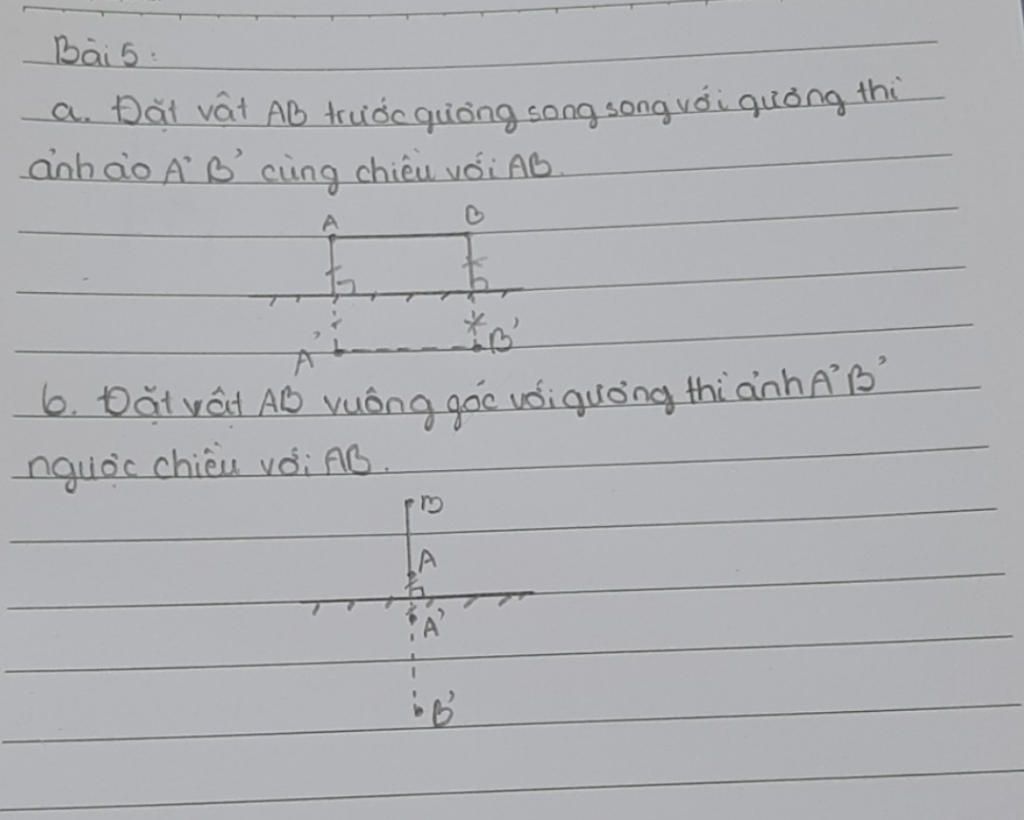 Bài 5:
a. Đặt vật AB trước gương song song với gương thì
ảnh ảo A'B' cùng chiều với AB.
A B
A' B'
b. Đặt vật AB vuông góc với gương thì ảnh A'B'
ngược chiều với AB.
B
A
A'
B'